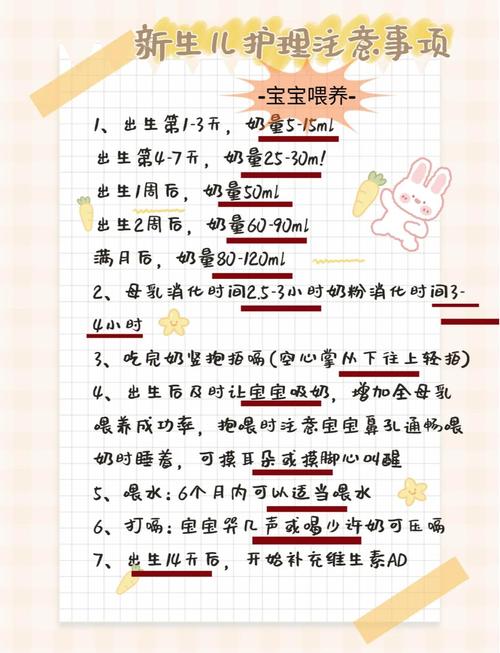 新生儿护理注意事项
-宝宝喂养-
1、出生第1-3天，奶量5-15ml
出生第4-7天，奶量25-30m!
出生1周后，奶量50ml
出生2周后，奶量60-90ml
满月后，奶量80-120ml
2、母乳消化时间2.5-3小时奶粉消化时间3-
4小时
3、吃完奶竖抱拍嗝(空心掌从下往上轻拍)
4、出生后及时让宝宝吸奶，增加全母乳
喂养成功率，抱喂时注意宝宝鼻孔通畅喂
奶时睡着，可摸耳朵或摸脚心叫醒
5、喂水：6个月内可以适当喂水
6、打嗝：宝宝哭几声或喝少许奶可压嗝
7、出生14天后，开始补充维生素AD